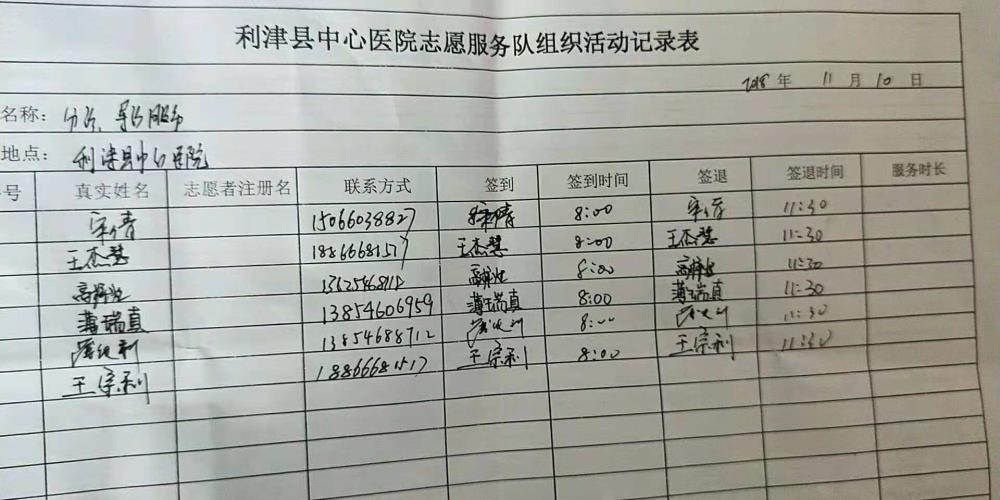 利津县中心医院志愿服务队组织活动记录表
2018年 11月 10日
名称: 分诊、导诊服务
地点: 利津县中心医院
号 真实姓名 志愿者注册名 联系方式 签到 签到时间 签退 签退时间 服务时长
15066038827 8:00 11:30
王杰慧 18866681577 王杰慧 8:00 王杰慧 11:30
8:00 11:30
薄瑞真 13854606959 薄瑞真 8:00 薄瑞真 11:30
13854688712 8:00 11:30
王宗利 18866681517 王宗利 8:00 王宗利 11:30